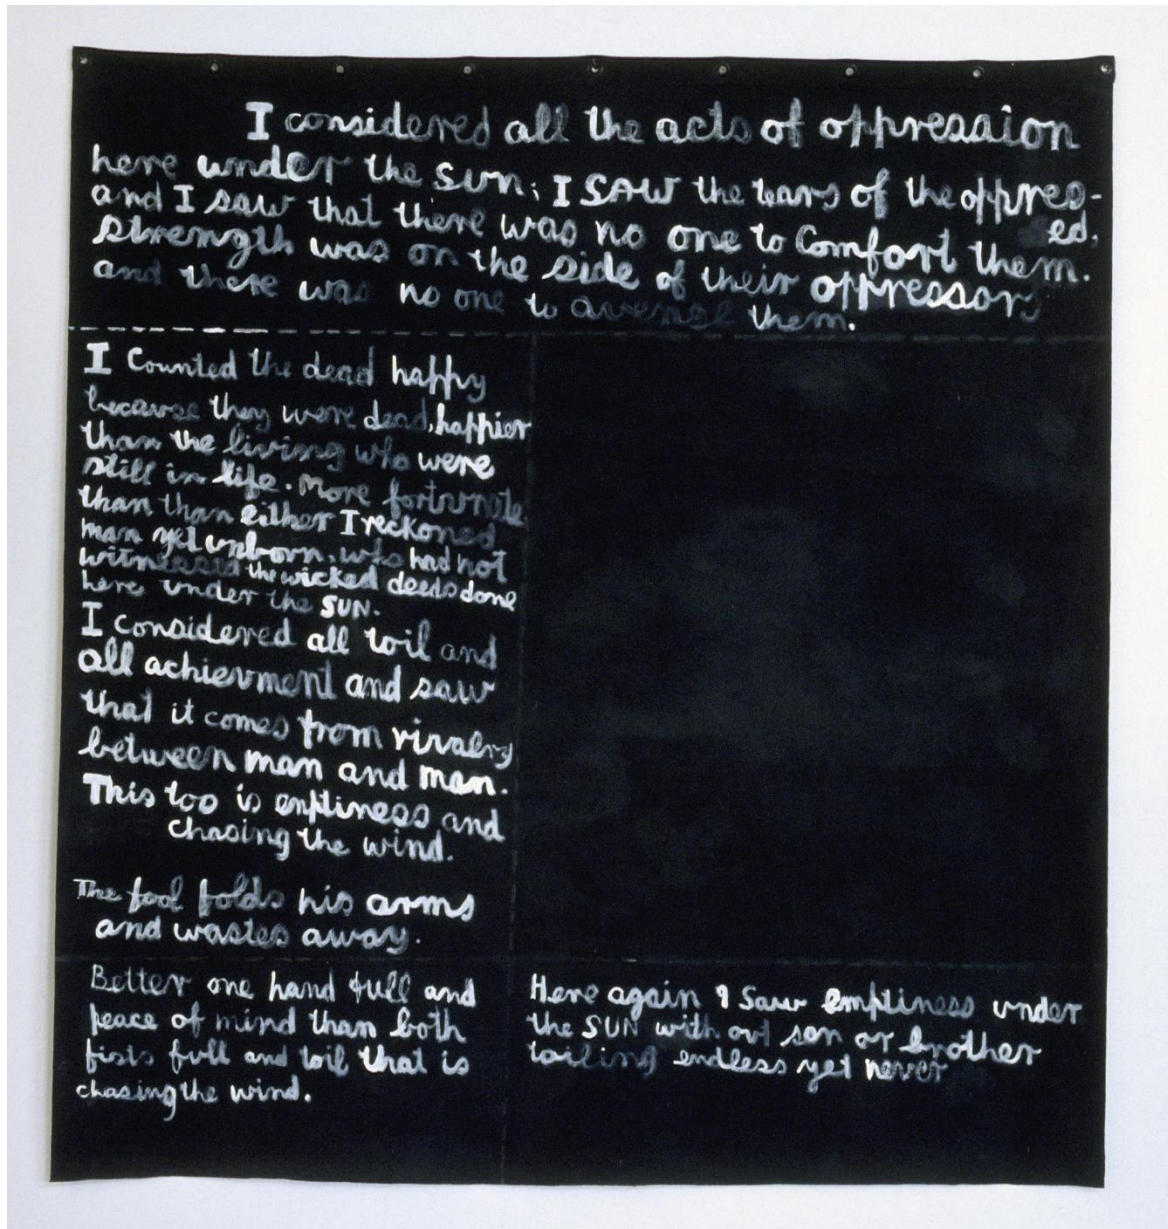 I considered all the acts of oppression
here under the SUN; I SAW the tears of the oppres-
ed,
and I saw that there was no one to Comfort them.
strength was on the side of their oppressors
and there was no one to avenge them.
I Counted the dead happy
because they were dead, happier
than the living who were
still in life. More fortunate
than than either I reckoned
man yet unborn, who had not
witnessed the wicked deeds done
here under the SUN.
I considered all toil and
all achievment and saw
that it comes from rivalry
between man and man.
This too is emptiness and
chasing the wind.
The fool folds his arms
and wastes away.
Better one hand full and
peace of mind than both
fists full and toil that is
chasing the wind.
Here again I Saw emptiness under
the SUN with out son or brother
toiling endless yet never